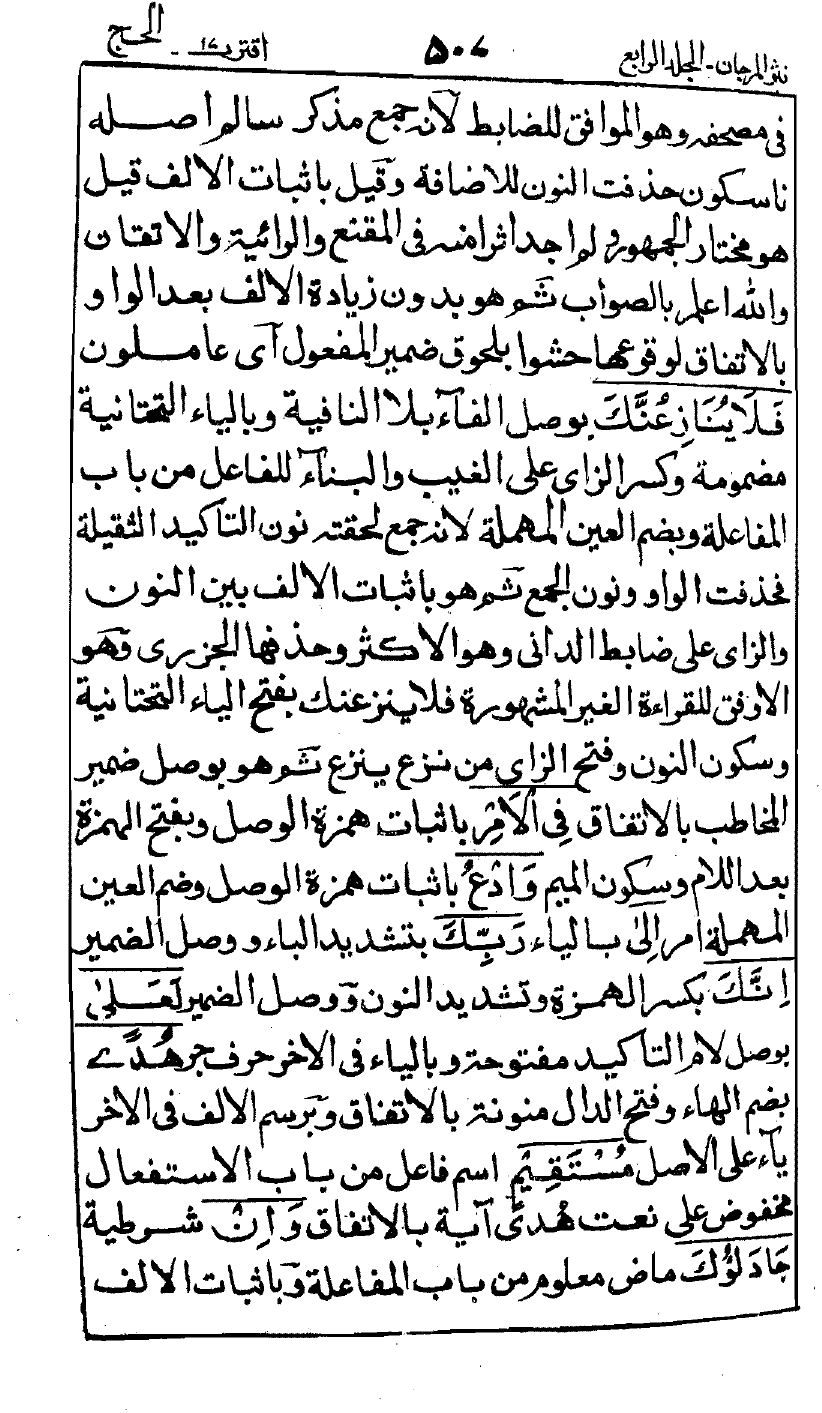 نثر المرجان - المجلد الرابع ٥٠٧ اقترب ١٧ - الحج
فى مصحفه وهو الموافق للضابط لأنه جمع مذكر سالم اصله
ناسكون حذفت النون للاضافة وقيل باثبات الالف قيل
هو مختار الجمهور ولم اجد اثرا منه فى المقنع والرائية والاتقان
والله اعلم بالصواب ثم هو بدون زيادة الالف بعد الواو
بالاتفاق لوقوعها حشوا بلحوق ضمير المفعول آى عاملون
فَلَا يُنَازِعُنَّكَ بوصل الفآء بلا النافية وبالياء التحتانية
مضمومة وكسر الزاى على الغيب والبنآء للفاعل من باب
المفاعلة وبضم العين المهملة لانه جمع لحقته نون التاكيد الثقيلة
فحذفت الواو ونون الجمع ثم هو باثبات الالف بين النون
والزاى على ضابط الدانى وهو الاكثر وحذفها الجزرى وهو
الاوفق للقراءة الغير المشهورة فلا ينزعنك بفتح الياء التحتانية
وسكون النون وفتح الزاى من نزع ينزع ثم هو بوصل ضمير
المخاطب بالاتفاق فِى الْاَمْرِ باثبات همزة الوصل وبفتح الهمزة
بعد اللام وسكون الميم وَادْعُ باثبات همزة الوصل وضم العين
المهملة امر اِلىٰ بالياء رَبِّكَ بتشديد الباء ووصل الضمير
اِنَّكَ بكسر الهمزة وتشديد النون ووصل الضمير لَعَلىٰ
بوصل لام التاكيد مفتوحة وبالياء فى الاخر حرف جر هُدًے
بضم الهاء وفتح الدال منونة بالاتفاق وبرسم الالف فى الاخر
يآء على الاصل مُسْتَقِيْمٍ اسم فاعل من باب الاستفعال
مخفوض على نعت هُدًى آية بالاتفاق وَاِنْ شرطية
جَادَلُوْكَ ماض معلوم من باب المفاعلة وباثبات الالف